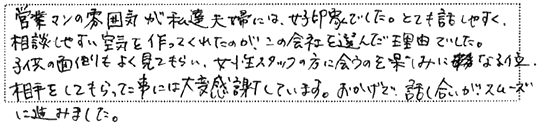 営業マンの雰囲気が私達夫婦には、好印象でした。とても話しやすく、
相談しやすい空気を作ってくれたのが、この会社を選んだ理由でした。
子供の面倒もよく見てもらい、女性スタッフの方に会うのを楽しみになる位、
相手をしてもらった事には大変感謝しています。おかげで、話し合いがスムーズ
に進みました。